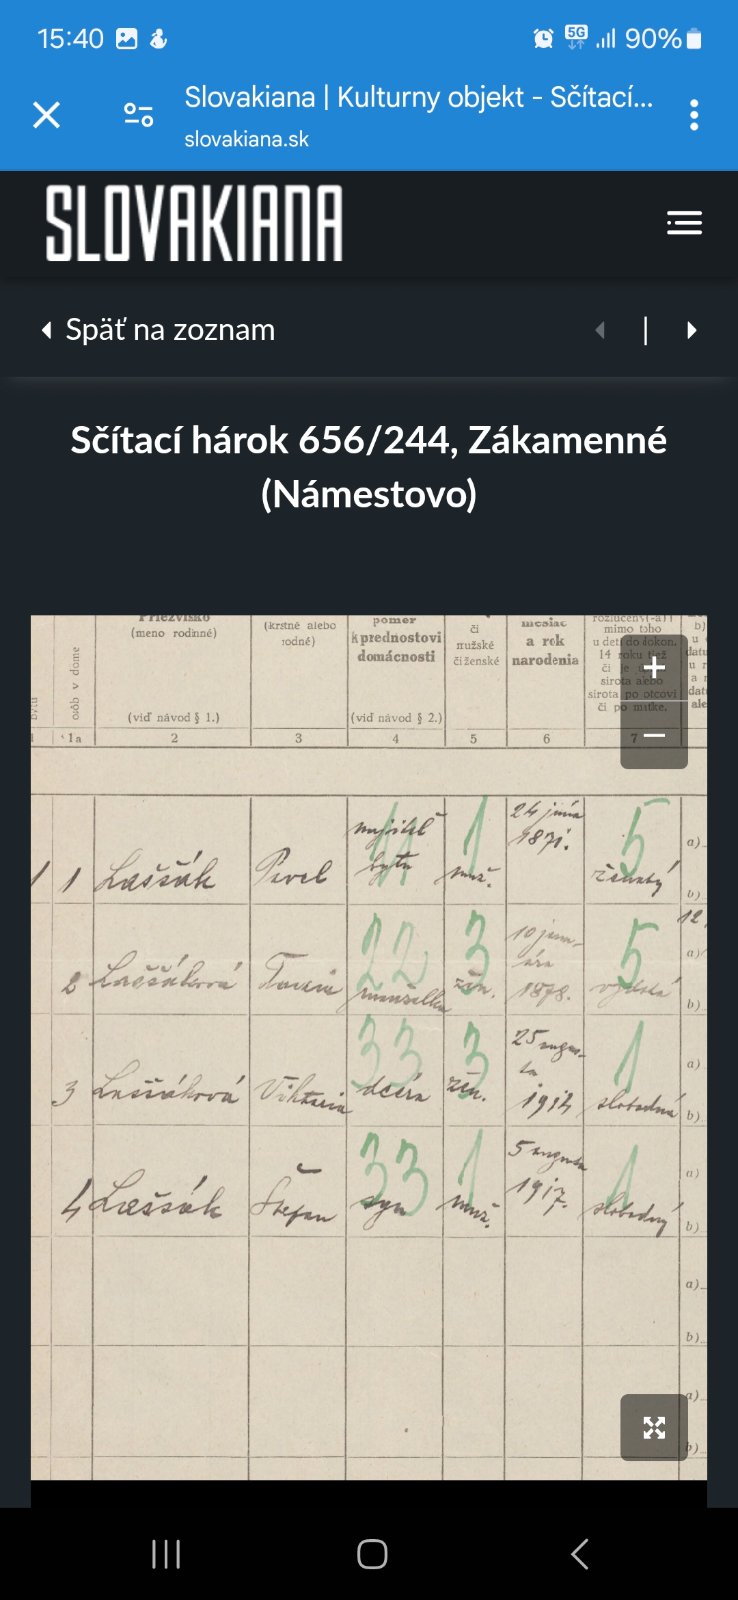 15:40
5G
90%
Slovakiana | Kulturny objekt - Sčítací...
slovakiana.sk
SLOVAKIANA
Späť na zoznam
|
Sčítací hárok 656/244, Zákamenné
(Námestovo)
bytu
osôb v dome
Priezvisko
(meno rodinné)
(viď návod § 1.)
(krstné alebo
rodné)
pomer
k prednostovi
domácnosti
(viď návod § 2.)
či
mužské
či ženské
mesiac
a rok
narodenia
rozlúčený(-á)
mimo toho
u detí do dokon.
14 roku tiež
či je
sirota alebo
sirota po otcovi
či po matke.
b)
u
datu
u r
a n
dat
ale
1 1a 2 3 4 5 6 7
1 1 Laššák Pavel majiteľ bytu 11 muž. 1 24 júna 1871. ženatý 5 a) b)
2 Laššáková manželka 22 žen. 3 10 januára 1878. vydatá 5 12. a) b)
3 Laššáková Viktoria dcéra 33 žen. 3 25 augusta 1914 slobodná 1 a) b)
4 Laššák Štefan syn 33 muž. 1 5 augusta 1917. slobodný 1 a) b)
a)
b)
a)
b)